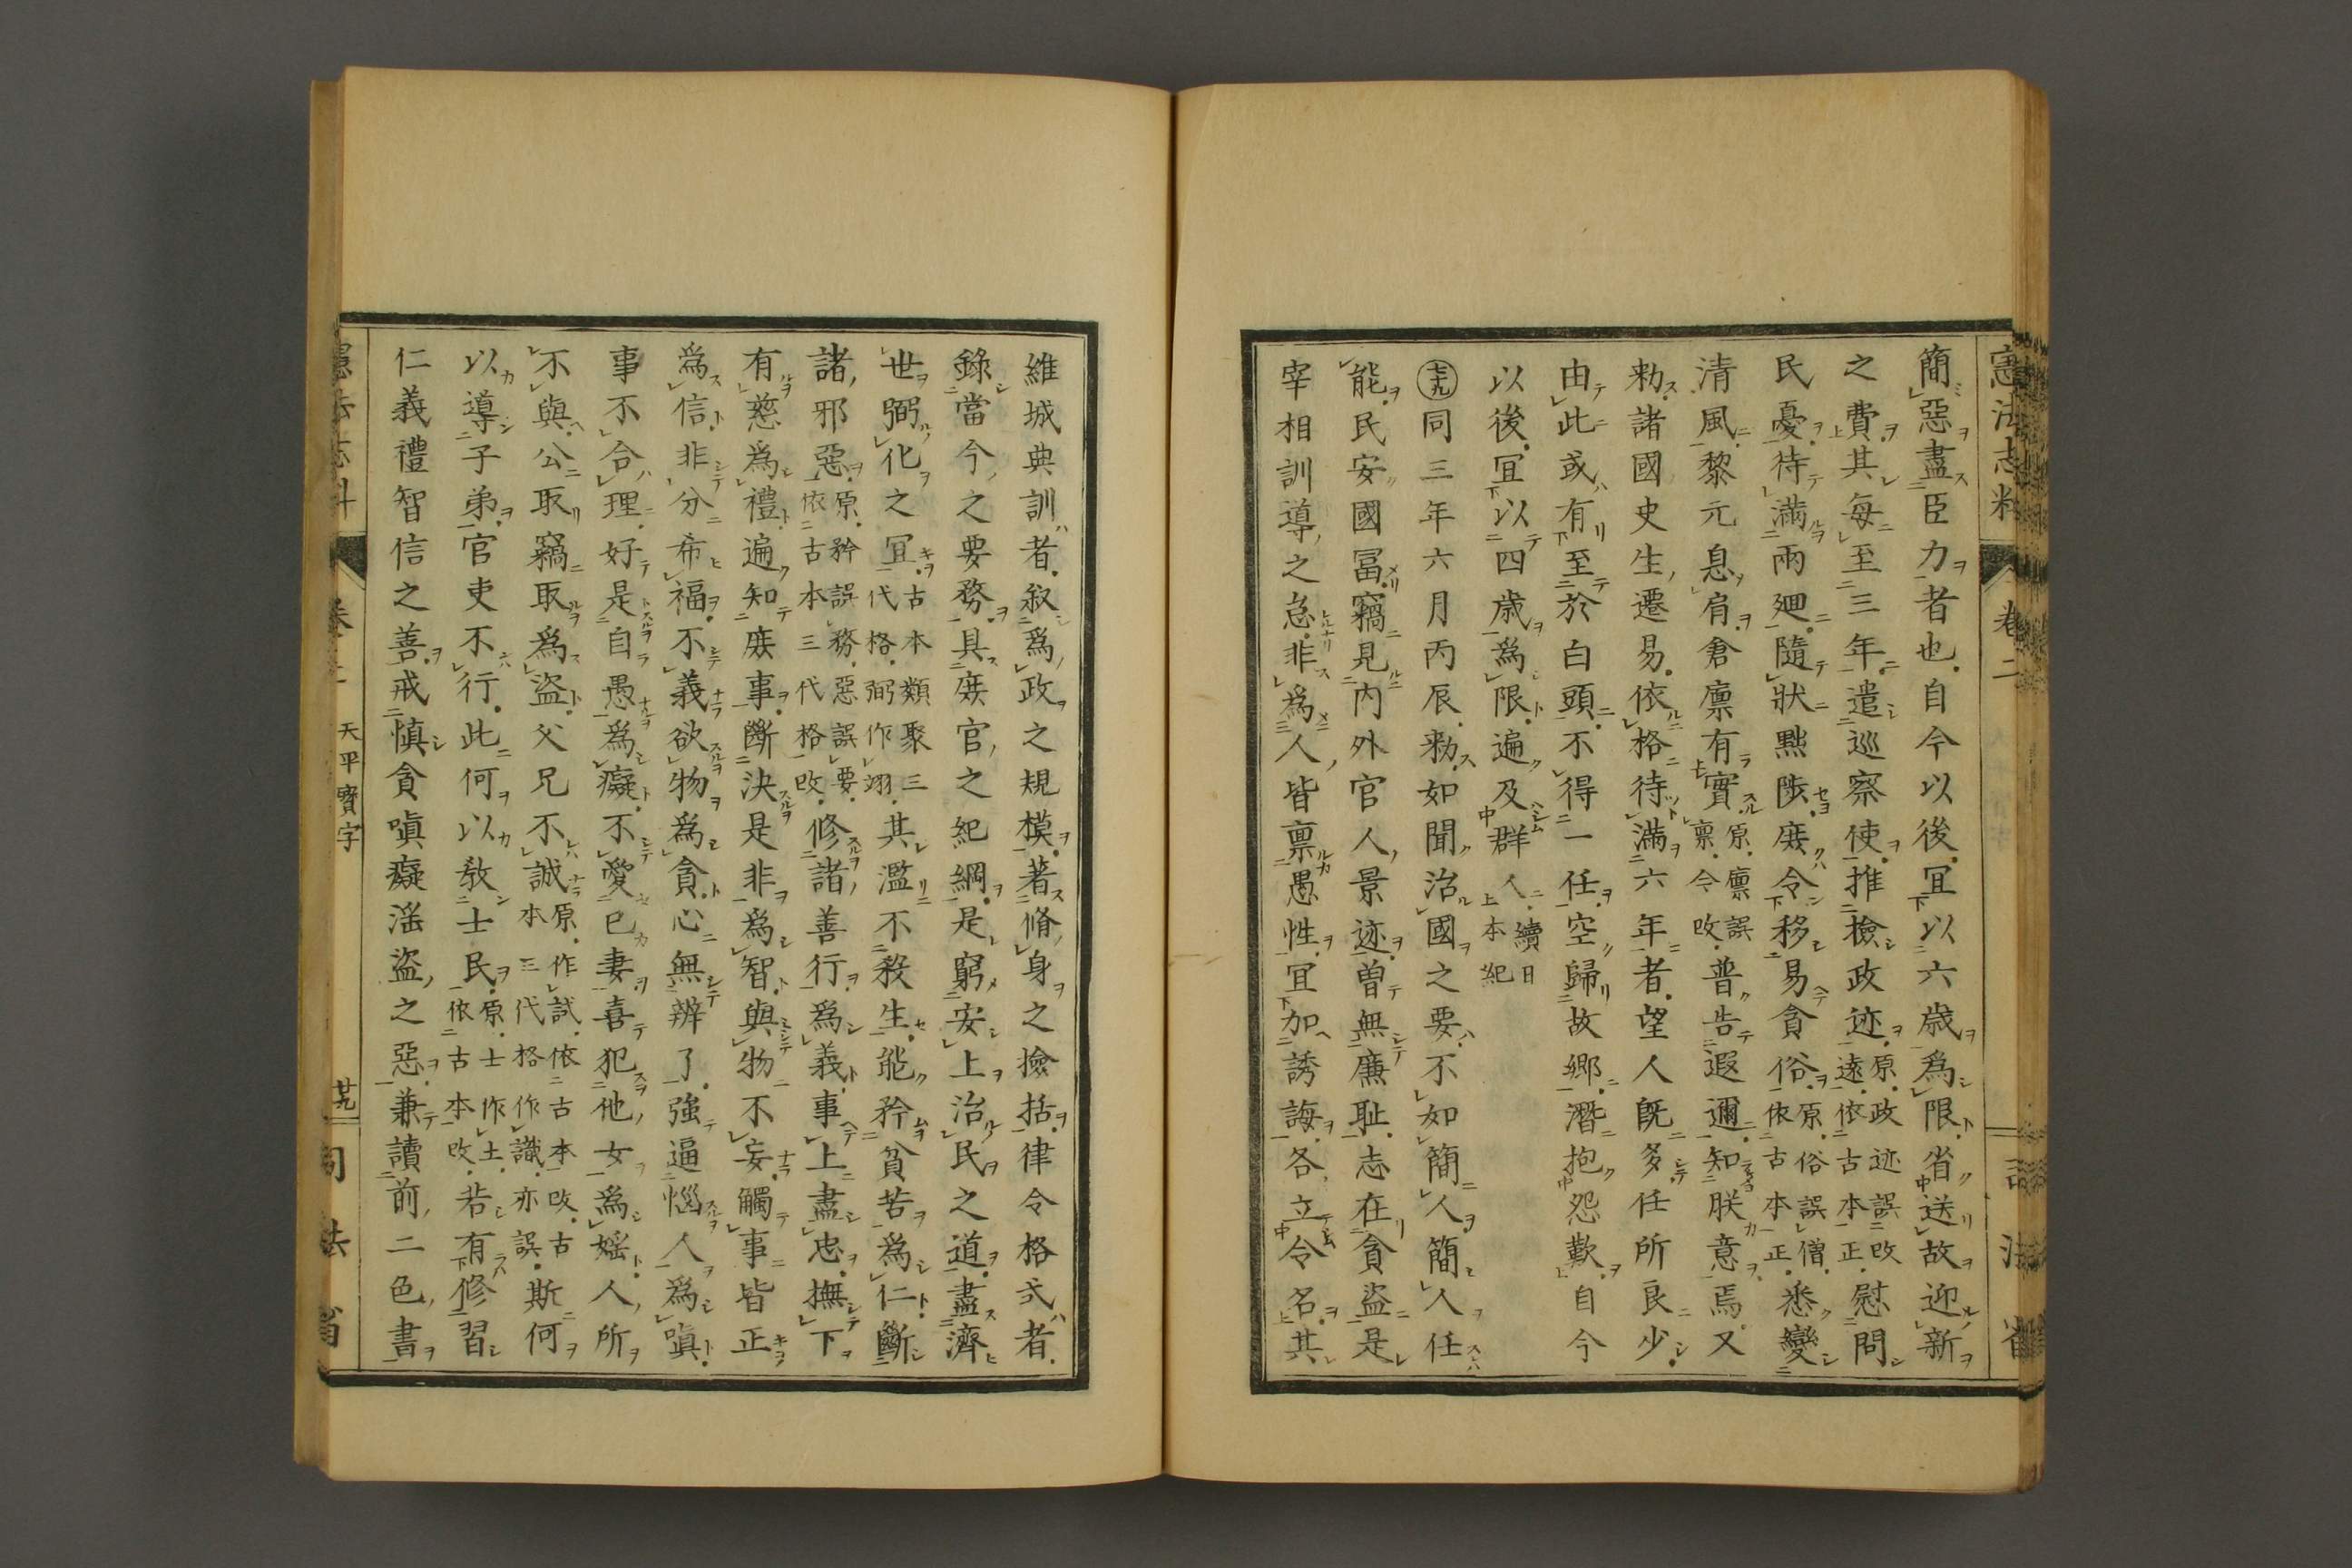 憲法志料 卷二 司法省
簡惡盡臣力者也自今以後冝以六歳爲限省送故迎新
之費其毎至三年遣巡察使推檢政迹原政迹誤遠依古本改正慰問
民憂待滿兩廻隨狀黜陟庻令移易貪俗原俗誤僧依古本正悉變
清風黎元息肩倉廪有實原廪誤禀今改普告遐邇知朕意焉又
勑諸國史生遷易依格待滿六年者望人既多任所良少
由此或有至於白頭不得一任空歸故鄉潛抱怨歎自今
以後冝以四歳爲限遍及群人續日本紀
七九同三年六月丙辰勑如聞治國之要不如簡人簡人任
能民安國冨竊見内外官人景迹曽無廉耻志在貪盜是
宰相訓導之怠非爲人皆禀愚性冝加誘誨各立令名其
維城典訓者叙爲政之規模著脩身之撿括律令格式者
錄當今之要務具庻官之紀綱是窮安上治民之道盡濟
世弼化之冝古本類聚三代格弼作翊其濫不殺生能矜貧苦爲仁斷
諸邪惡原矜誤務惡誤要依古本三代格改修諸善行爲義事上盡忠撫下
有慈爲禮遍知庻事斷決是非爲智與物不妄觸事皆正
爲信非分希福不義欲物爲貪心無辨了強逼惱人爲嗔
事不合理好是自愚爲癡不愛己妻喜犯他女爲婬人所
不與公取竊取爲盜父兄不誠原作試依古本改古本三代格作識亦誤斯何
以導子弟官吏不行此何以敎士民原士作土依古本改若有修習
仁義禮智信之善戒愼貪嗔癡滛盜之惡兼讀前二色書
天平寳字 廿九